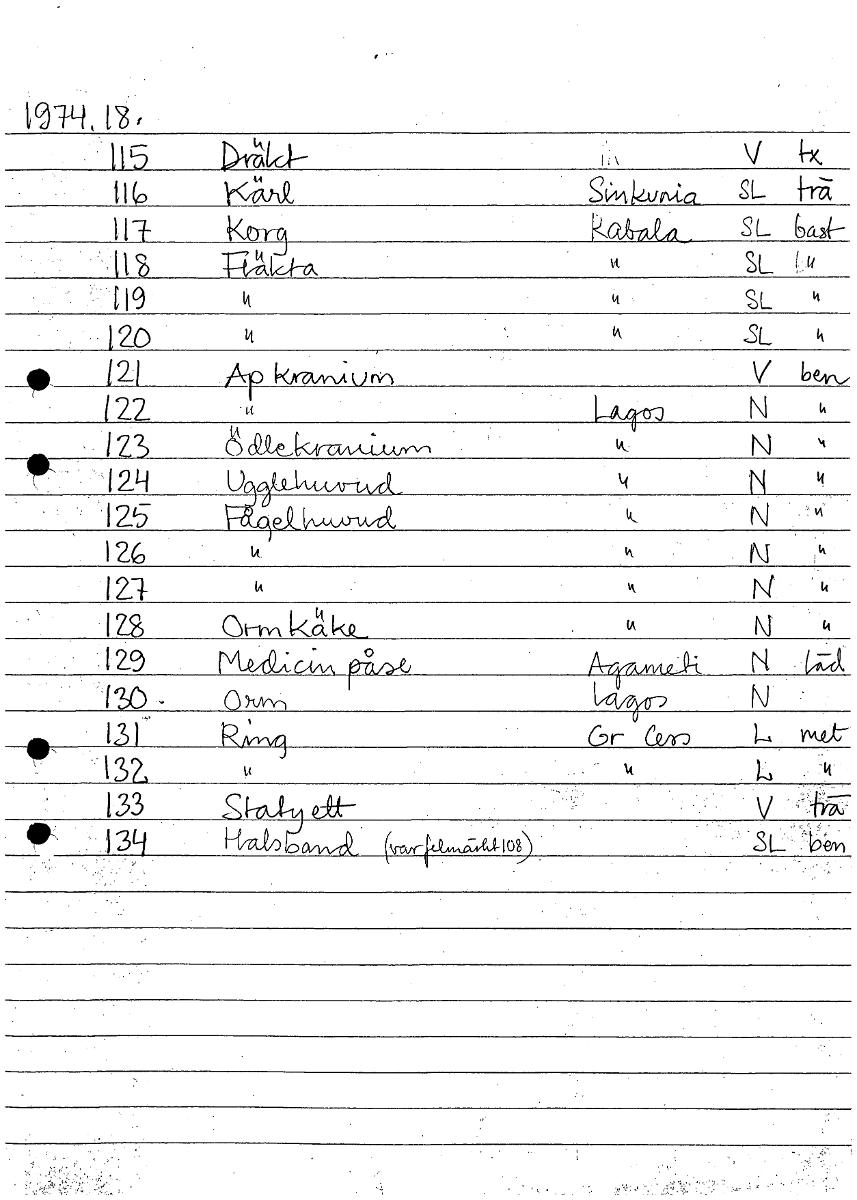 1974.18.
115 Dräkt V tx
116 Kärl Sinkunia SL trä
117 Korg Kabala SL bast
118 Fläkta " SL "
119 " " SL "
120 " " SL "
121 Apkranium V ben
122 " Lagos N "
123 Ödlekranium " N "
124 Ugglehuvud " N "
125 Fågelhuvud " N "
126 " " N "
127 " " N "
128 Ormkäke " N "
129 Medicinpåse Agameti N läd
130 . Orm Lagos N
131 Ring Gr Cess L met
132 " " L "
133 Statyett V trä
134 Halsband (var felmärkt 108) SL ben